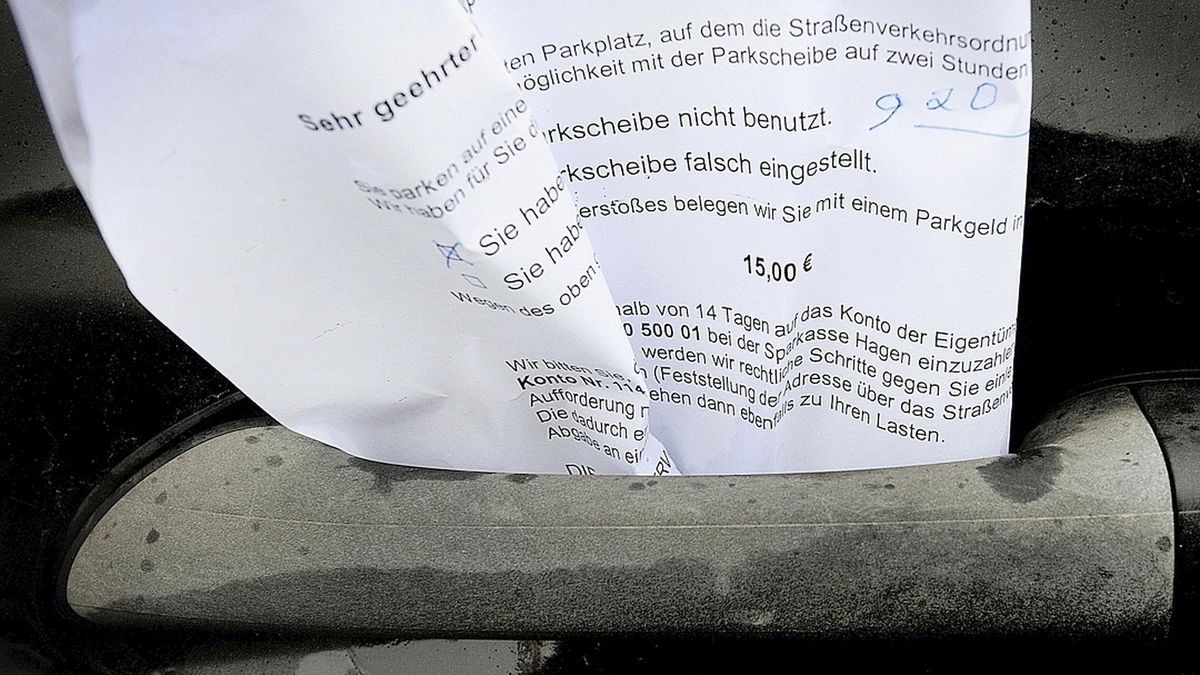 Sehr geehrter
ten Parkplatz, auf dem die Straßenverkehrsordnu
Sie parken auf eine
öglichkeit mit der Parkscheibe auf zwei Stunden
Wir haben für Sie d
920
Sie habe
rkscheibe nicht benutzt.
Sie habe
rkscheibe falsch eingestellt.
Wegen des oben
erstoßes belegen wir Sie mit einem Parkgeld in
15,00 €
Wir bitten Sie
halb von 14 Tagen auf das Konto der Eigentüm
Konto Nr. 114
0 500 01 bei der Sparkasse Hagen einzuzahle
Aufforderung n
werden wir rechtliche Schritte gegen Sie einle
Die dadurch e
n (Feststellung der Adresse über das Straßenve
Abgabe an ein
ehen dann ebenfalls zu Ihren Lasten.
DIE
ERV